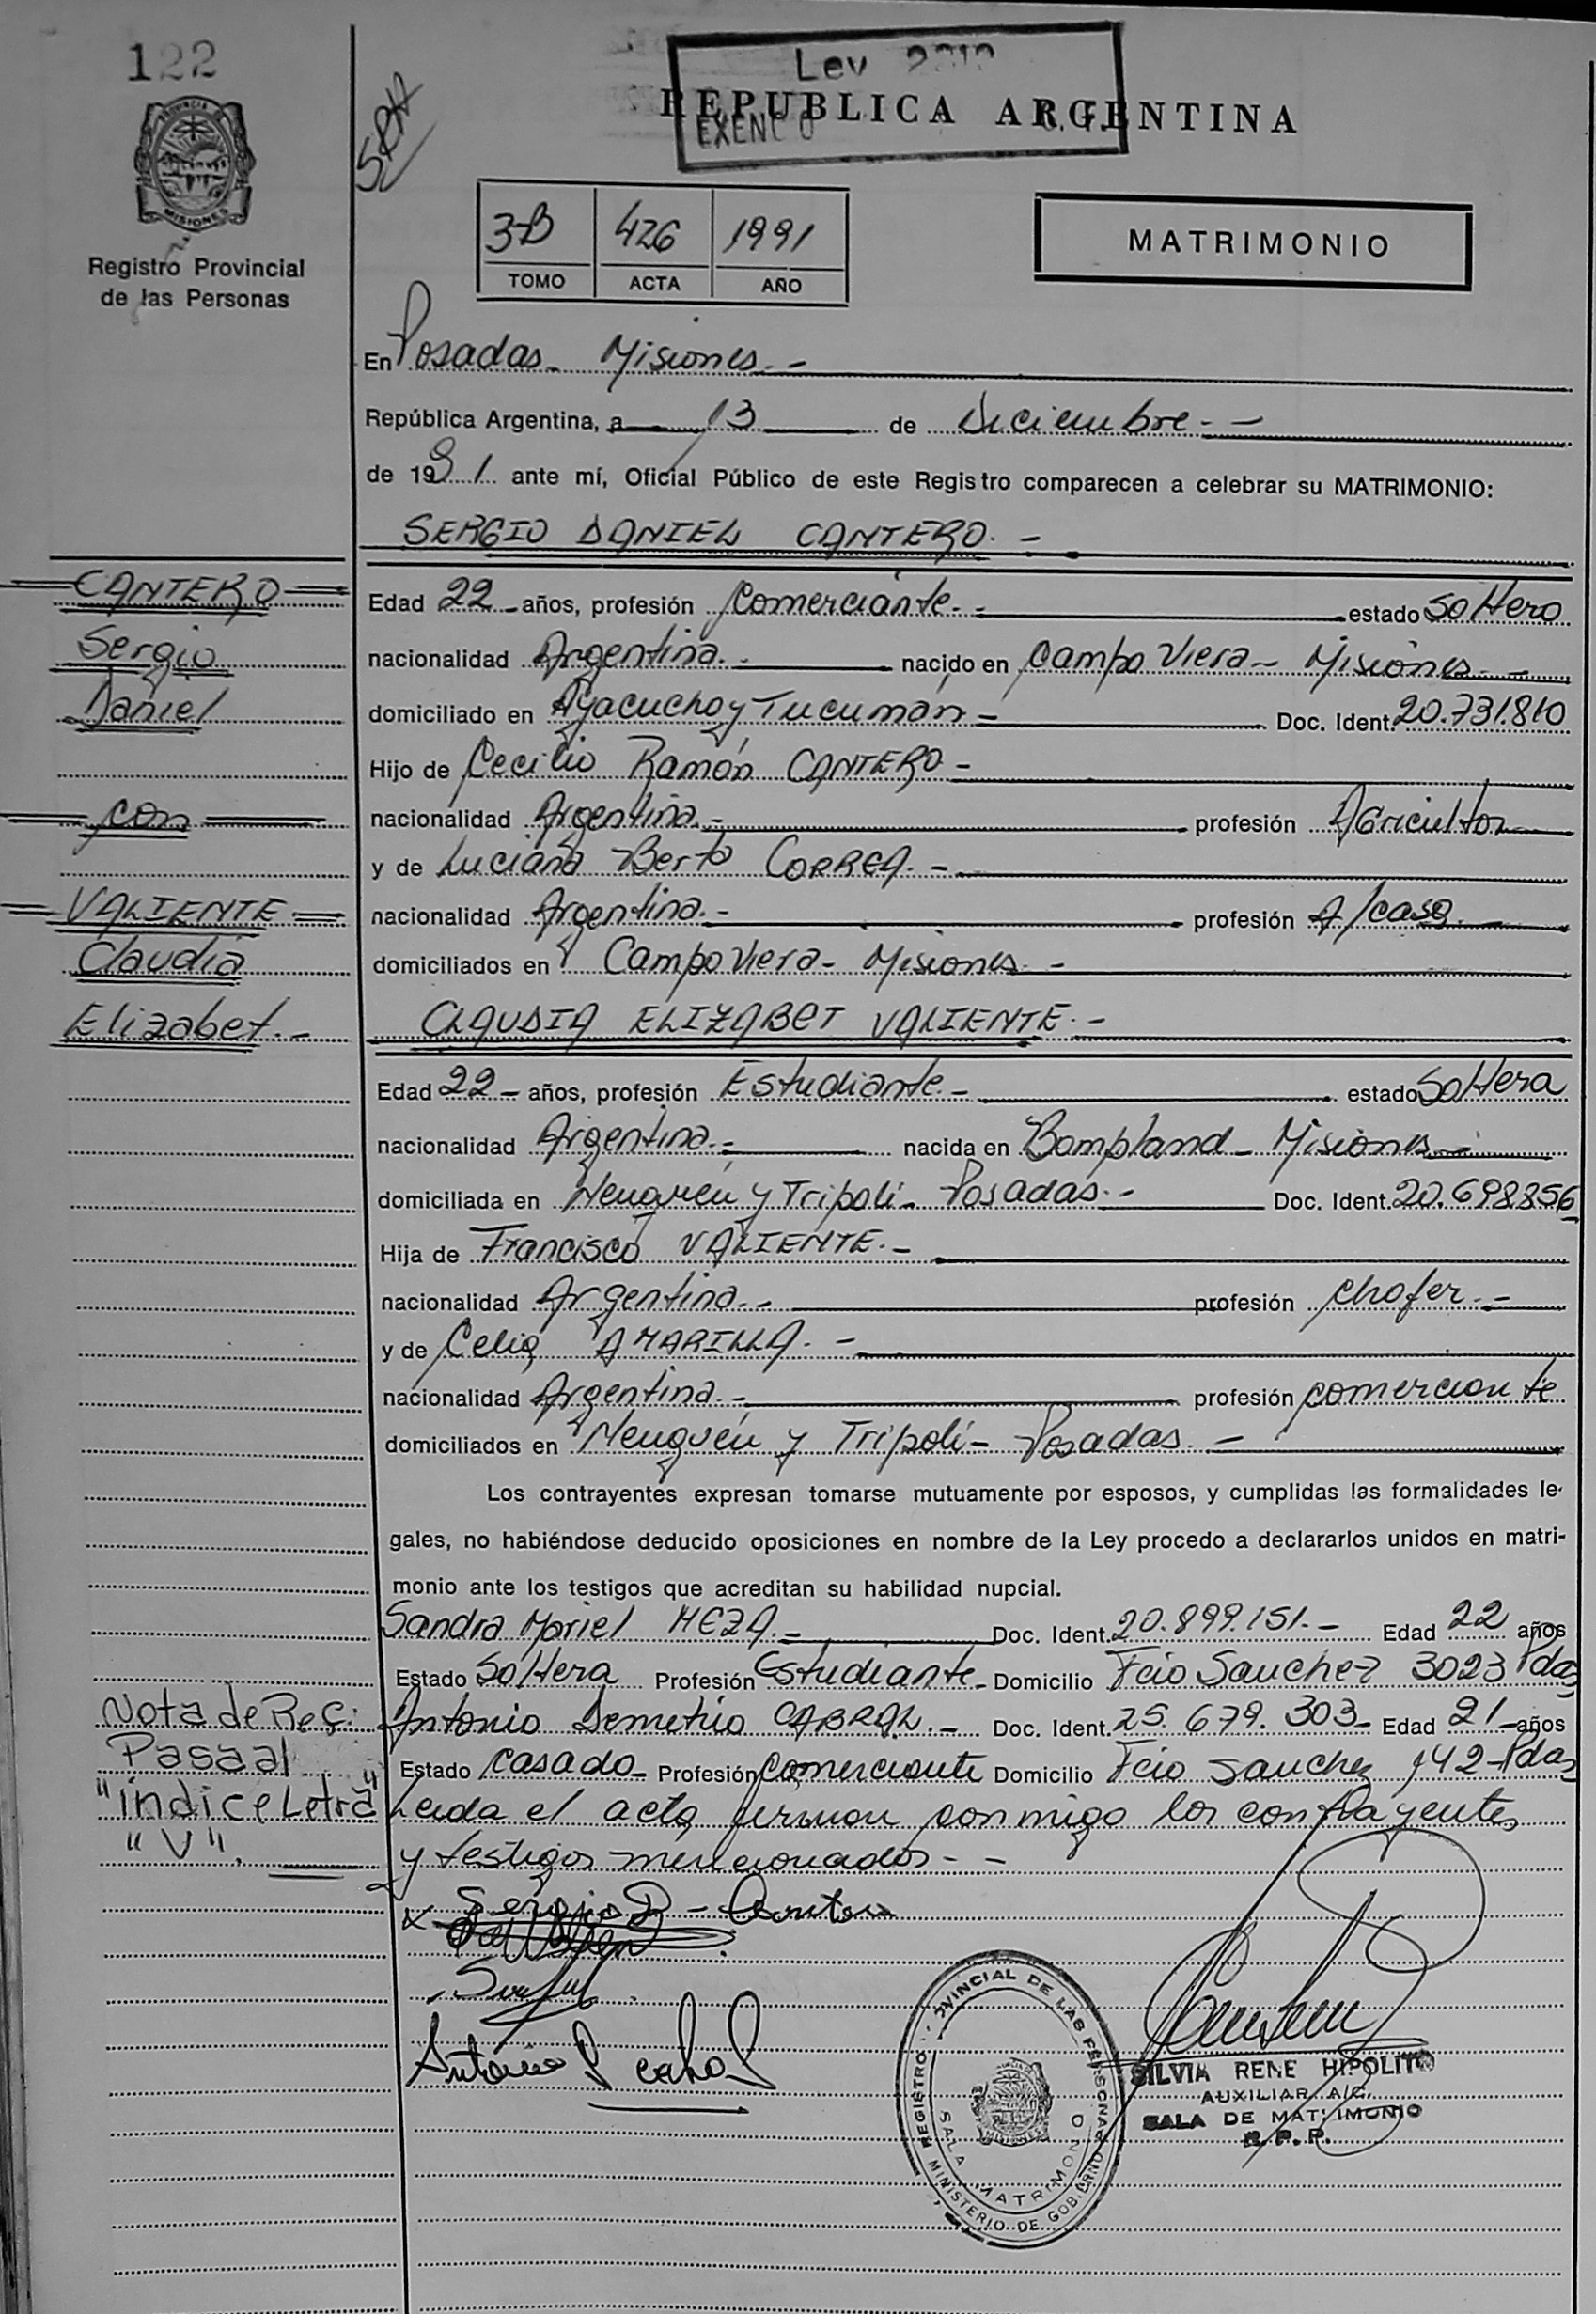 122
Ley
REPUBLICA ARGENTINA
EXEN
PROVINCIA
MISIONES
Registro Provincial
de las Personas
3-B 426 1991
TOMO ACTA AÑO
MATRIMONIO
En Posadas - Misiones. -
República Argentina, a 13 de Diciembre. - -
de 1991 ante mí, Oficial Público de este Registro comparecen a celebrar su MATRIMONIO:
SERGIO DANIEL CANTERO. -
CANTERO
Edad 22 - años, profesión Comerciante. - estado Soltero
Sergio
nacionalidad Argentina. - nacido en Campo Viera - Misiones -
Daniel
domiciliado en Ayacucho y Tucumán - Doc. Ident. 20.731.810
Hijo de Cecilio Ramón CANTERO -
con
nacionalidad Argentina. - profesión Agricultor
y de Luciana Berta CORREA. -
VALIENTE
nacionalidad Argentina. - profesión A/casa.
Claudia
domiciliados en Campo Viera - Misiones -
Elizabet. -
CLAUDIA ELIZABET VALIENTE. -
Edad 22 - años, profesión Estudiante. - estado Soltera
nacionalidad Argentina. - nacida en Bompland - Misiones -
domiciliada en Neuquén y Tripoli - Posadas. - Doc. Ident. 20.698.856
Hija de Francisco VALIENTE. -
nacionalidad Argentina. - profesión chofer. -
y de Celia AMARILLA. -
nacionalidad Argentina. - profesión comerciante
domiciliados en Neuquén y Tripolí - Posadas. -
Los contrayentes expresan tomarse mutuamente por esposos, y cumplidas las formalidades le-
gales, no habiéndose deducido oposiciones en nombre de la Ley procedo a declararlos unidos en matri-
monio ante los testigos que acreditan su habilidad nupcial.
Sandra Mariel MEZA. - Doc. Ident. 20.899.151. - Edad 22 años
Estado Soltera Profesión Estudiante - Domicilio Fcio Sanchez 3023 Pdas
Nota de Ref:
Antonio Demetrio CABRAL. - Doc. Ident. 25.679.303 - Edad 21 - años
Pasa al
Estado Casado - Profesión Comerciante Domicilio Fcio Sanchez 142 - Pdas
"indice Letra
Leida el acta firman conmigo los contrayentes
"V".
y testigos mencionados - -
Sergio D - Cantero
Antonio D cabral
REGISTRO PROVINCIAL DE LAS PERSONAS
SALA MATRIMONIO
MINISTERIO DE GOBIERNO
SILVIA RENE HIPOLITO
AUXILIAR A/C.
SALA DE MATRIMONIO
R. P. P.